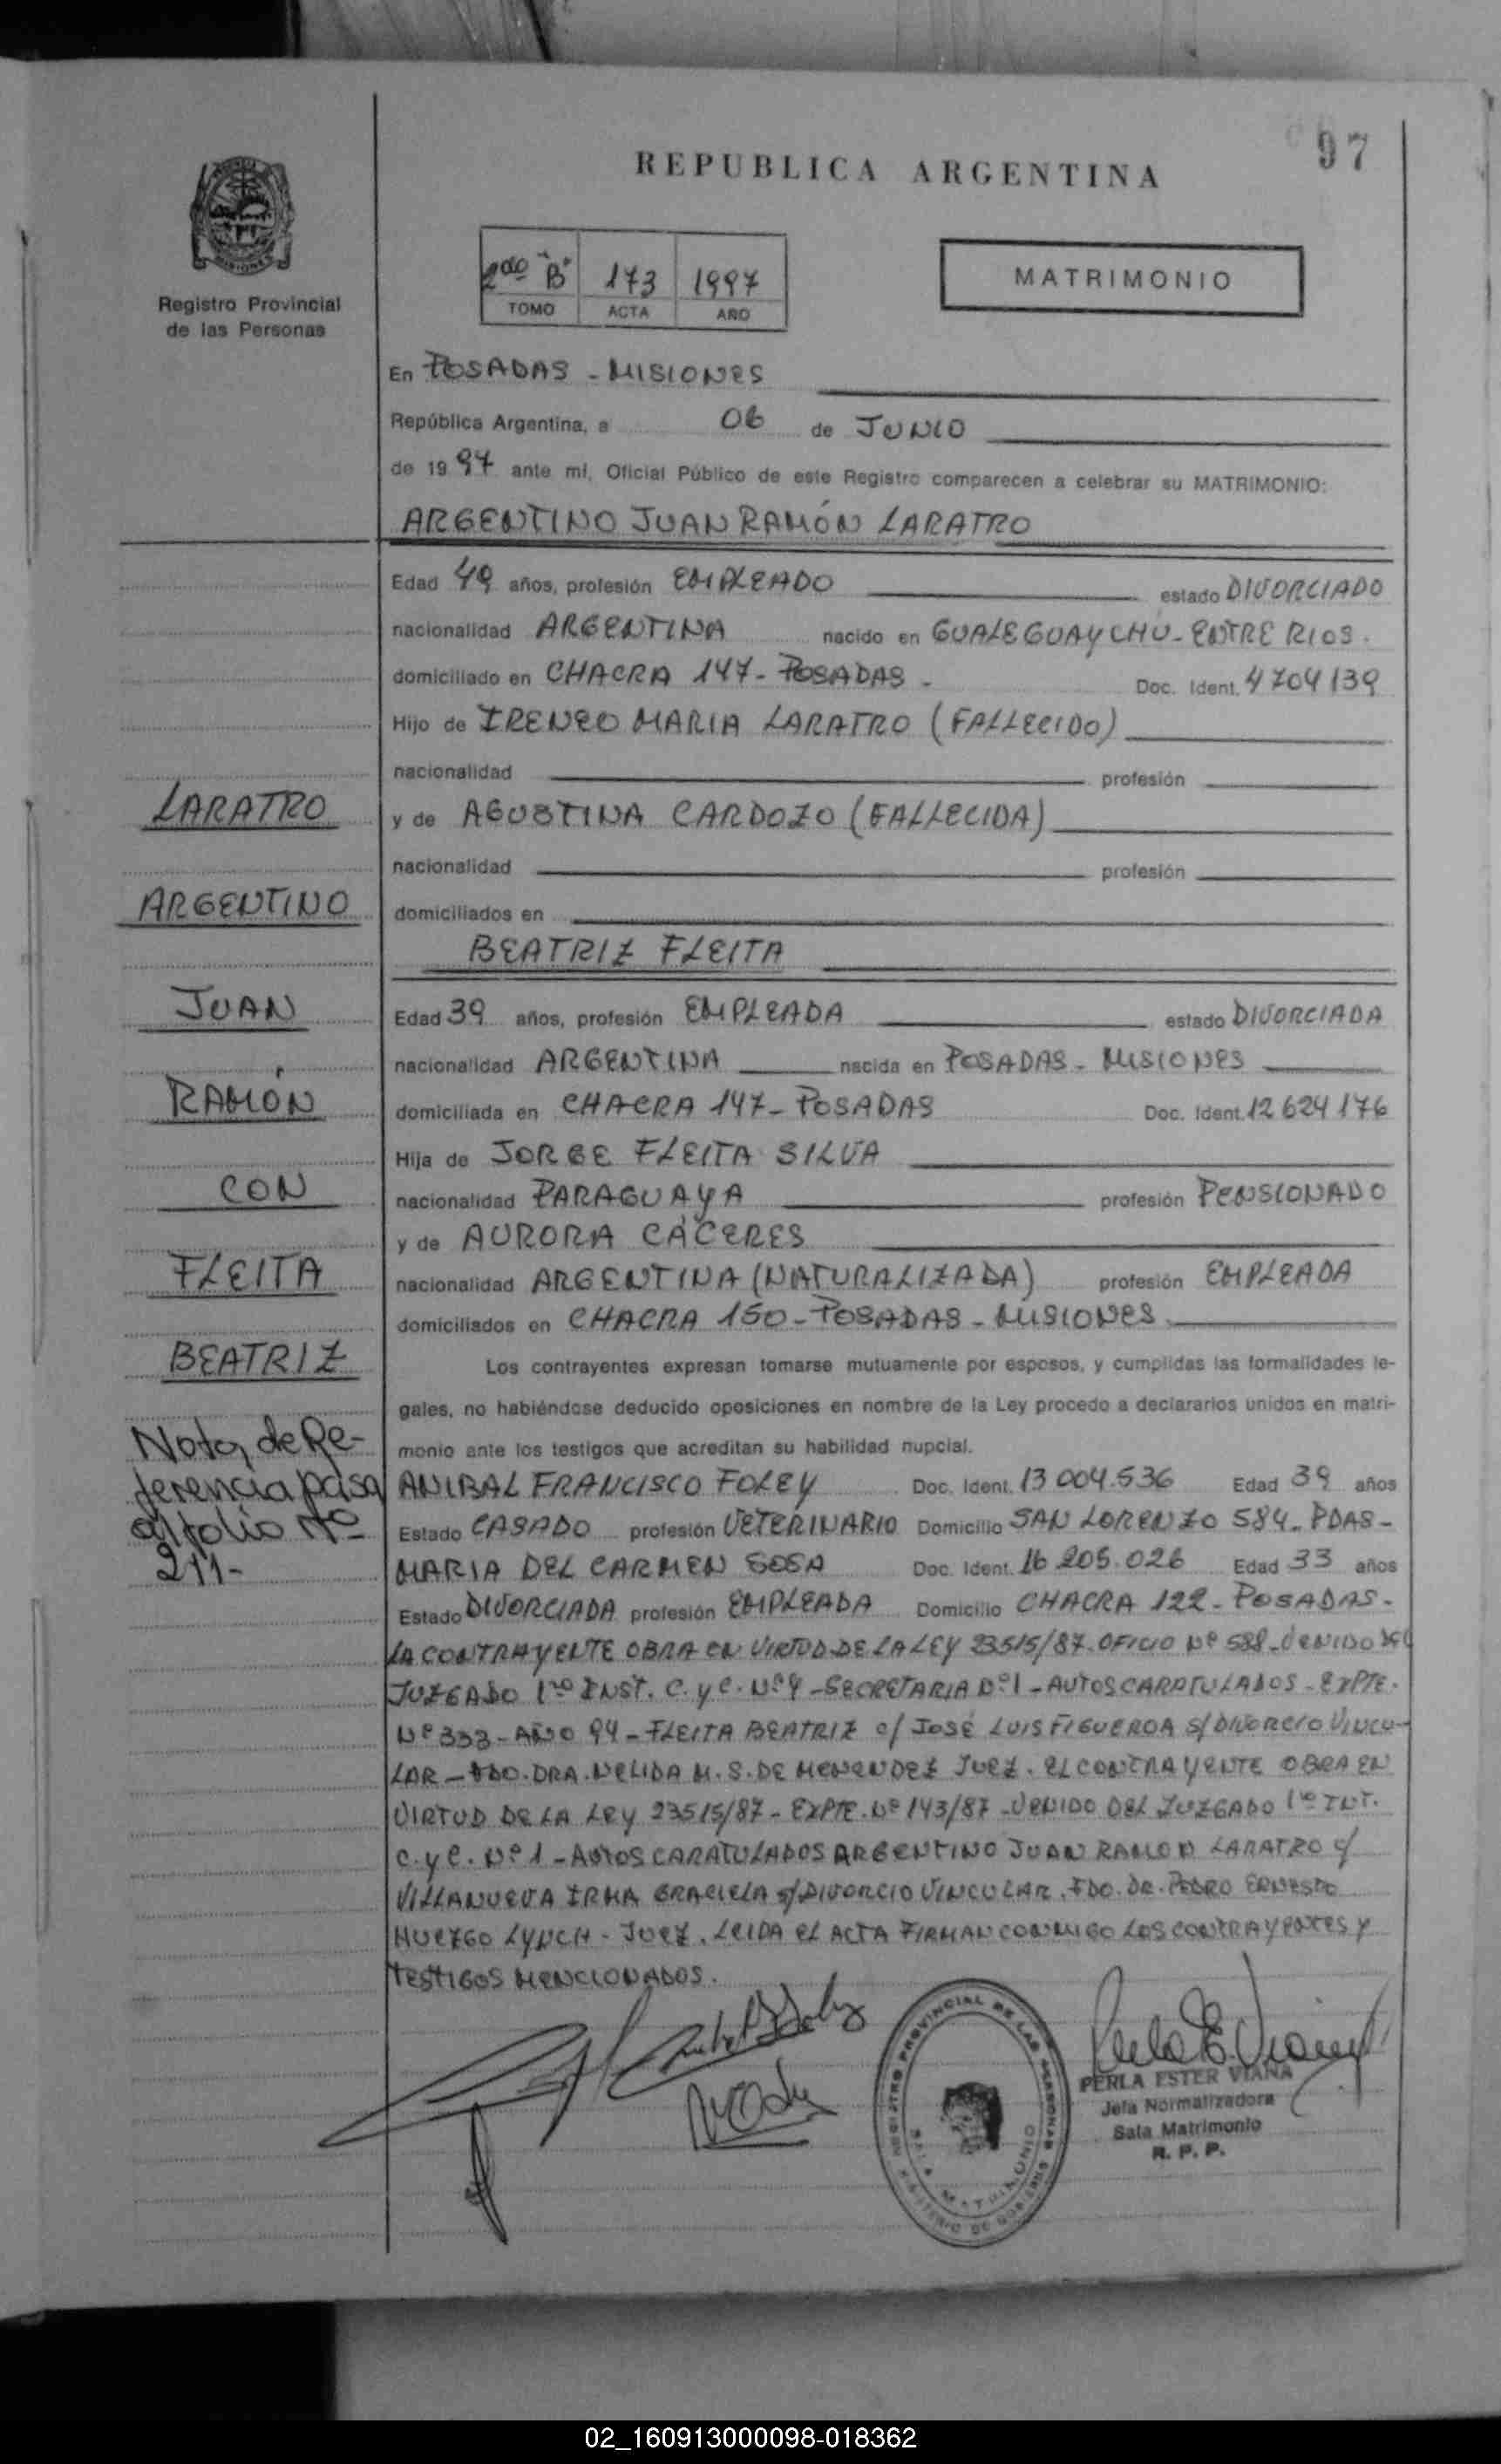 97
REPUBLICA ARGENTINA
MISIONES
Registro Provincial
de las Personas
2do "B" 173 1997
TOMO ACTA AÑO
MATRIMONIO
En POSADAS - MISIONES
República Argentina, a 06 de JUNIO
de 1997 ante mí, Oficial Público de este Registro comparecen a celebrar su MATRIMONIO:
ARGENTINO JUAN RAMÓN LARATRO
Edad 49 años, profesión EMPLEADO estado DIVORCIADO
nacionalidad ARGENTINA nacido en GUALEGUAYCHU - ENTRE RIOS.
domiciliado en CHACRA 147 - POSADAS - Doc. Ident. 4704139
Hijo de IRENEO MARIA LARATRO (FALLECIDO)
nacionalidad profesión
y de AGUSTINA CARDOZO (FALLECIDA)
nacionalidad profesión
domiciliados en
BEATRIZ FLEITA
Edad 39 años, profesión EMPLEADA estado DIVORCIADA
nacionalidad ARGENTINA nacida en POSADAS - MISIONES
domiciliada en CHACRA 147 - POSADAS Doc. Ident. 12624176
Hija de JORGE FLEITA SILVA
nacionalidad PARAGUAYA profesión PENSIONADO
y de AURORA CÁCERES
nacionalidad ARGENTINA (NATURALIZADA) profesión EMPLEADA
domiciliados en CHACRA 150 - POSADAS - MISIONES.
Los contrayentes expresan tomarse mutuamente por esposos, y cumplidas las formalidades le-
gales, no habiéndose deducido oposiciones en nombre de la Ley procedo a declararlos unidos en matri-
monio ante los testigos que acreditan su habilidad nupcial.
ANIBAL FRANCISCO FOLEY Doc. Ident. 13 004.536 Edad 39 años
Estado CASADO profesión VETERINARIO Domicilio SAN LORENZO 584 - PDAS -
MARIA DEL CARMEN SOSA Doc. Ident. 16 205.026 Edad 33 años
Estado DIVORCIADA profesión EMPLEADA Domicilio CHACRA 122 - POSADAS -
LA CONTRAYENTE OBRA EN VIRTUD DE LA LEY 23515/87 - OFICIO Nº 588 - VENIDO DEL
JUZGADO 1ro INST. C. y C. Nº 4 - SECRETARIA Nº 1 - AUTOS CARATULADOS - EXPTE.
Nº 333 - AÑO 94 - FLEITA BEATRIZ c/ JOSÉ LUIS FIGUEROA S/ DIVORCIO VINCU-
LAR - FDO. DRA. NELIDA M. S. DE MENENDEZ JUEZ. EL CONTRAYENTE OBRA EN
VIRTUD DE LA LEY 23515/87 - EXPTE. Nº 143/87 - VENIDO DEL JUZGADO 1ro INT.
C. y C. Nº 1 - AUTOS CARATULADOS ARGENTINO JUAN RAMON LARATRO c/
VILLANUEVA IRMA GRACIELA s/ DIVORCIO VINCULAR. FDO. DR. PEDRO ERNESTO
HUEZGO LYNCH - JUEZ. LEIDA EL ACTA FIRMAN CONMIGO LOS CONTRAYENTES Y
TESTIGOS MENCIONADOS.
LARATRO
ARGENTINO
JUAN
RAMÓN
CON
FLEITA
BEATRIZ
Nota de Re-
ferencia pasa
al folio Nº
211-
REGISTRO PROVINCIAL DE LAS PERSONAS
SALA MATRIMONIO
MINISTERIO DE GOBIERNO
PERLA ESTER VIANA
Jefa Normalizadora
Sala Matrimonio
R. P. P.
02_160913000098-018362